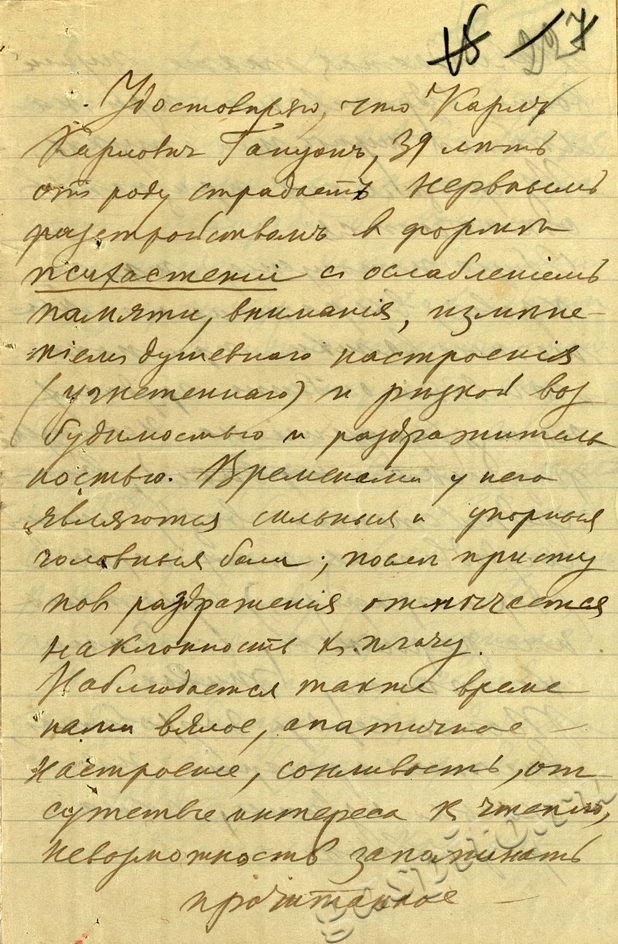 227
Удостовѣряю, что Карлъ
Карловичъ Гапуонъ, 39 лѣтъ
отъ роду страдаетъ нервнымъ
разстройствомъ въ формѣ
психастеніи съ ослабленіемъ
памяти, вниманія, измѣне-
ніемъ душевнаго настроенія
(угнетеннаго) и рѣзкой воз
будимостью и раздражитель
ностью. Временами у него
являются сильныя и упорныя
головныя боли; послѣ присту
повъ раздраженія отмѣчается
наклонность къ плачу.
Наблюдается также време
нами вялое, апатичное
настроеніе, сонливость, от
сутствіе интереса къ чтенію,
невозможность запоминать
прочитанное —